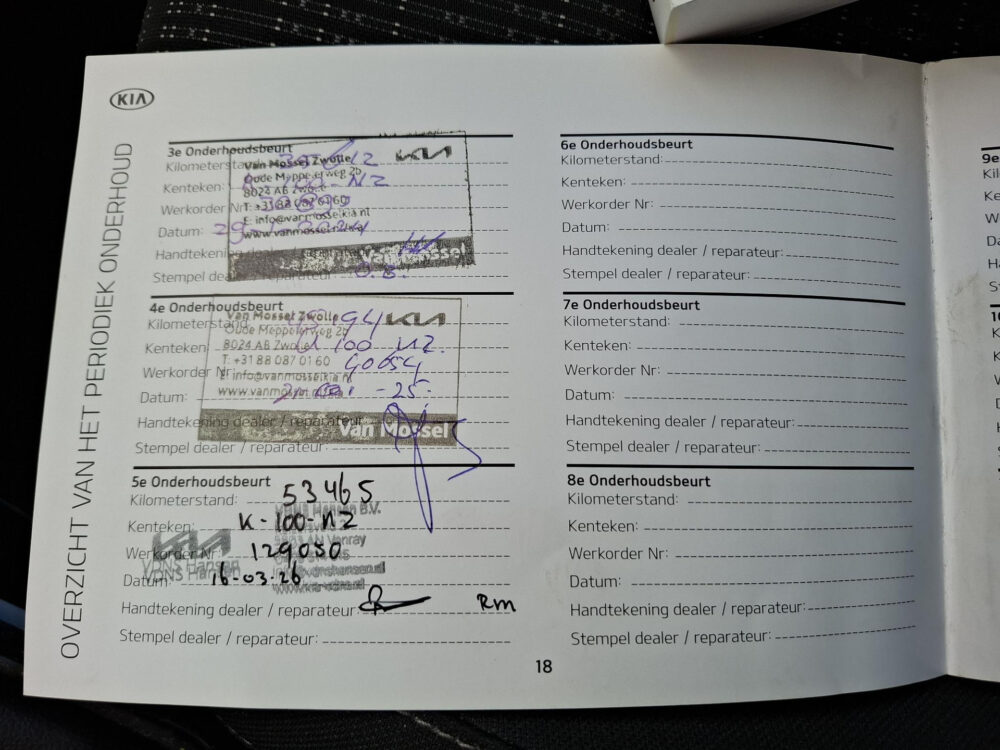 KIA
OVERZICHT VAN HET PERIODIEK ONDERHOUD
3e Onderhoudsbeurt
Kilometerstand:
Kenteken: -100-NZ
Werkorder Nr:
Datum: 29
Handtekening dealer / reparateur:
Stempel dealer / reparateur:
Van Mossel Zwolle
Oude Meppelerweg 2b
8024 AB Zwolle
T: +31 88 087 01 60
E: info@vanmosselkia.nl
www.vanmossel.nl/kia
KIA
Van Mossel
4e Onderhoudsbeurt
Kilometerstand:
Kenteken: K 100 NZ.
Werkorder Nr: 40054
Datum: -25-
Handtekening dealer / reparateur:
Stempel dealer / reparateur:
Van Mossel Zwolle
Oude Meppelerweg 2b
8024 AB Zwolle
T: +31 88 087 01 60
E: info@vanmosselkia.nl
KIA
Van Mossel
5e Onderhoudsbeurt
Kilometerstand: 53465
Kenteken: K-100-NZ
Werkorder Nr: 129050
Datum: 16-03-26
Handtekening dealer / reparateur: Rm
Stempel dealer / reparateur:
KIA
VDNS Hansen
VDNS Hansen
VDNS Hansen B.V.
Venray
6e Onderhoudsbeurt
Kilometerstand:
Kenteken:
Werkorder Nr:
Datum:
Handtekening dealer / reparateur:
Stempel dealer / reparateur:
7e Onderhoudsbeurt
Kilometerstand:
Kenteken:
Werkorder Nr:
Datum:
Handtekening dealer / reparateur:
Stempel dealer / reparateur:
8e Onderhoudsbeurt
Kilometerstand:
Kenteken:
Werkorder Nr:
Datum:
Handtekening dealer / reparateur:
Stempel dealer / reparateur:
18
9e